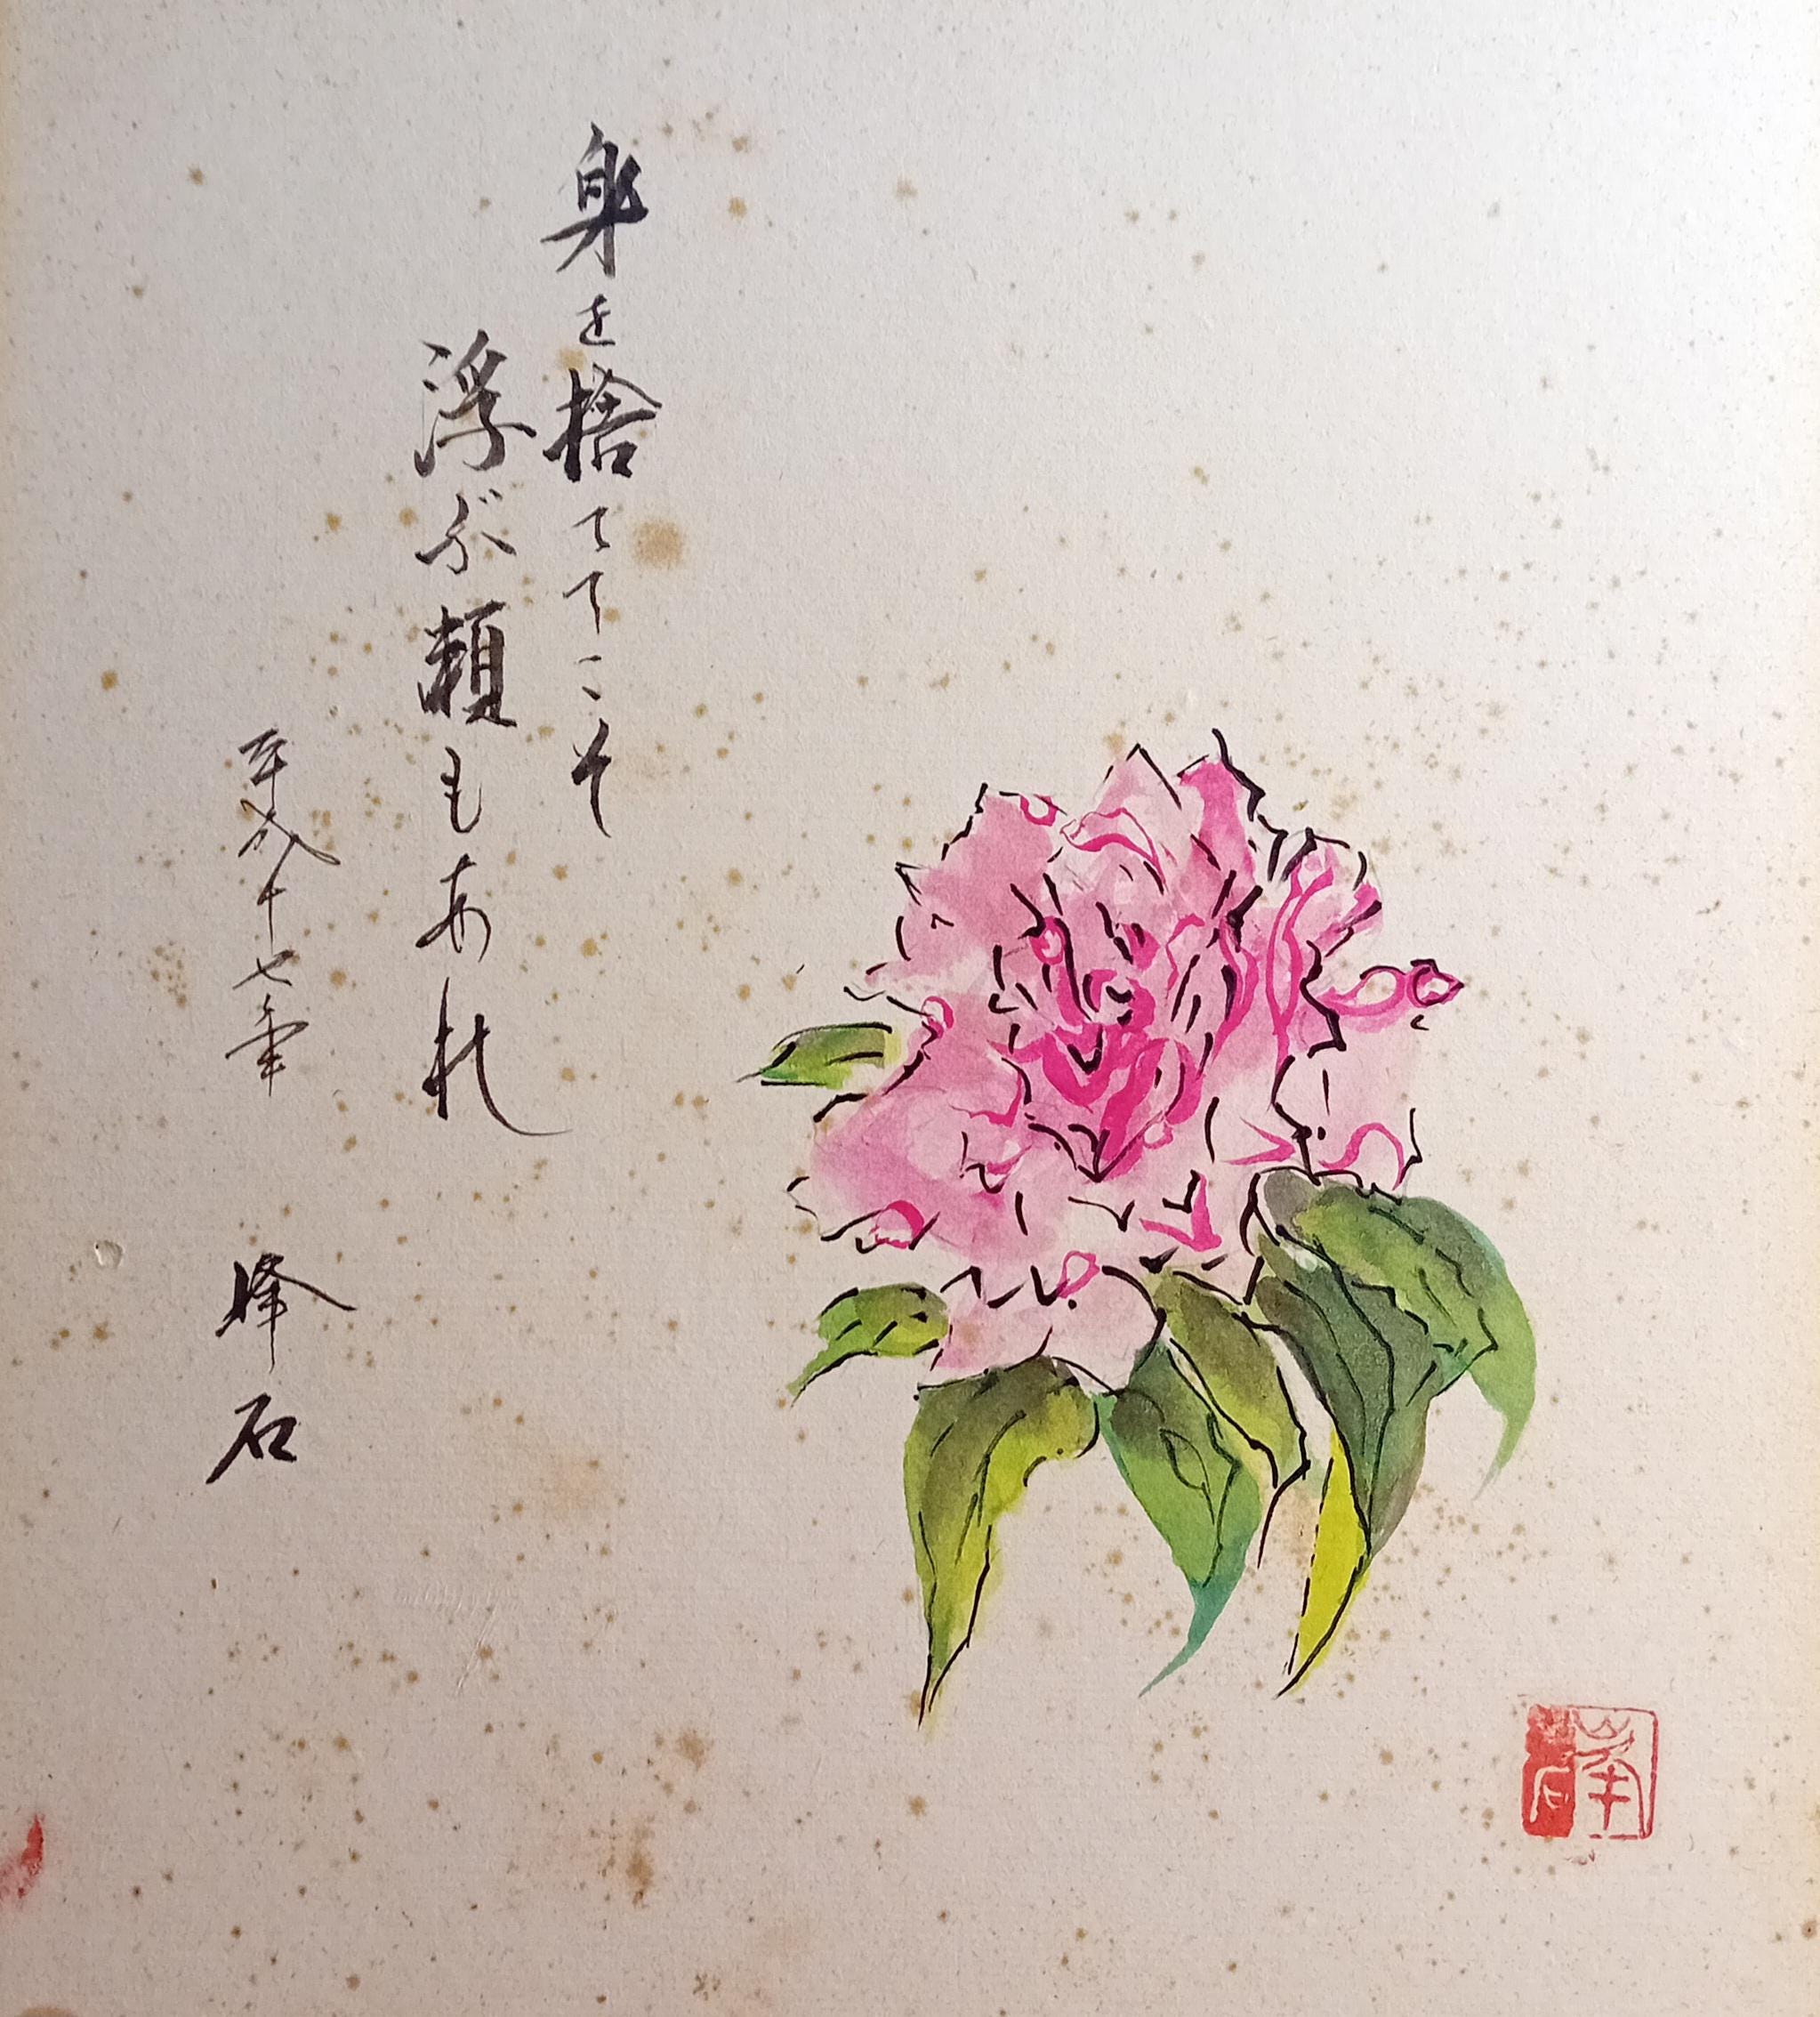 身を捨ててこそ
浮ぶ瀬もあれ
平成十七年 峰石
峰石